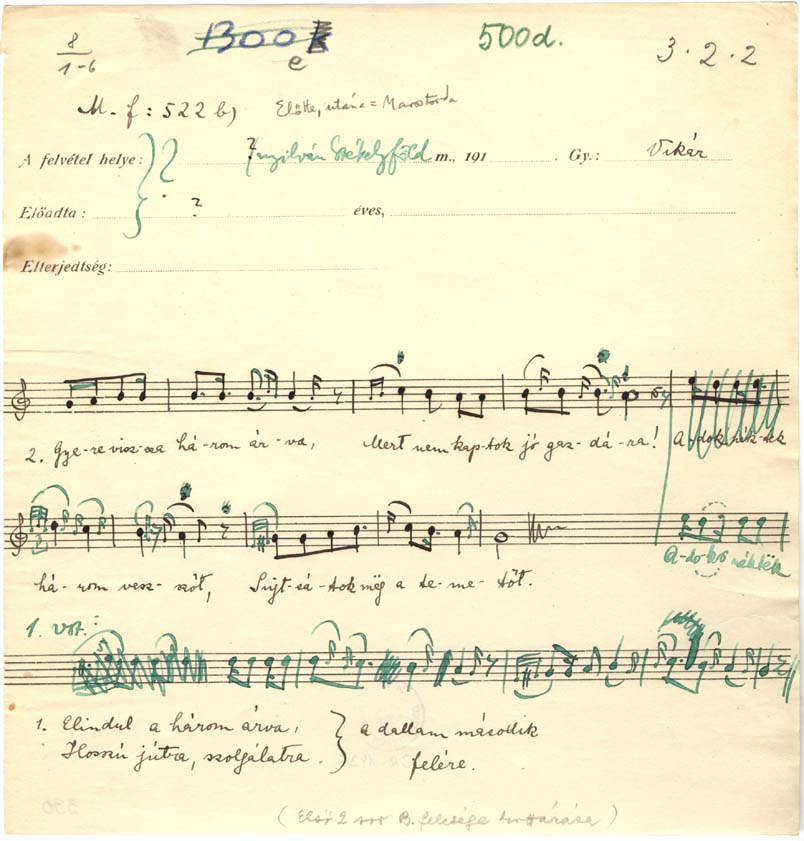 8
1-6
1300
e
500d.
3.2.2
M. f: 522 b)
Előtte, utána = Marostorda
A felvétel helye: ? nyilván Székelyföld m., 191 . Gy.: Vikár
Előadta: ? éves,
Elterjedtség:
2. Gye-re visz-sza há-rom ár-va, Mert nem kap-tok jó gaz-dá-ra! A-dok nék-tek
há-rom vesz-szőt, Sújt-sá-tok még a te-me-tőt.
A-do-k nék-tek
1. vsz.:
1. Elindul a három árva,
Hosszú jútra, szolgálatra.
a dallam második
felére.
(Első 2 sor B. felesége)